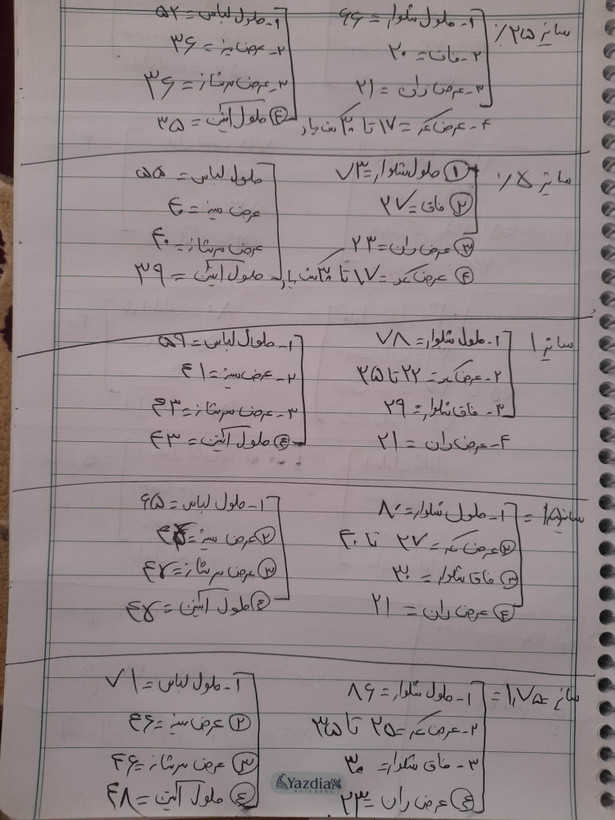 سایز ۲۵٪
۱- طول شلوار = ۶۶
۲- فاق = ۲۰
۳- عرض ران = ۲۱
۴- عرض کمر = ۱۷ تا
۱- طول لباس = ۵۲
۲- عرض سینه = ۳۶
۳- عرض سرشانه = ۳۶
۴ طول آستین = ۳۵
سایز ۵٪
۱ طول شلوار = ۷۳
۲ فاق = ۲۷
۳ عرض ران = ۲۳
۴ عرض کمر = ۱۷ تا
طول لباس = ۵۵
عرض سینه = ۴۰
عرض سرشانه = ۴۰
طول آستین = ۳۹
سایز ۱
۱- طول شلوار = ۷۸
۲- عرض کمر = ۲۲ تا ۳۵
۳- فاق شلوار = ۲۹
۴- عرض ران = ۲۱
۱- طول لباس = ۵۹
۲- عرض سینه = ۴۱
۳- عرض سرشانه = ۴۳
۴ طول آستین = ۴۳
سایز ۱/۵ =
۱- طول شلوار = ۸۰
۲ عرض کمر = ۲۷ تا ۴۰
۳ فاق شلوار = ۳۰
۴ عرض ران = ۲۱
۱- طول لباس = ۶۵
۲ عرض سینه =
۳ عرض سرشانه = ۴۷
۴ طول آستین = ۴۷
سایز ۱/۷۵ =
۱- طول شلوار = ۸۶
۲- عرض کمر = ۲۵ تا ۳۵
۳- فاق شلوار = ۳۰
۴ عرض ران = ۲۳
۱- طول لباس = ۷۱
۲ عرض سینه = ۴۶
۳ عرض سرشانه = ۴۶
۴ طول آستین = ۴۸
Yazdian